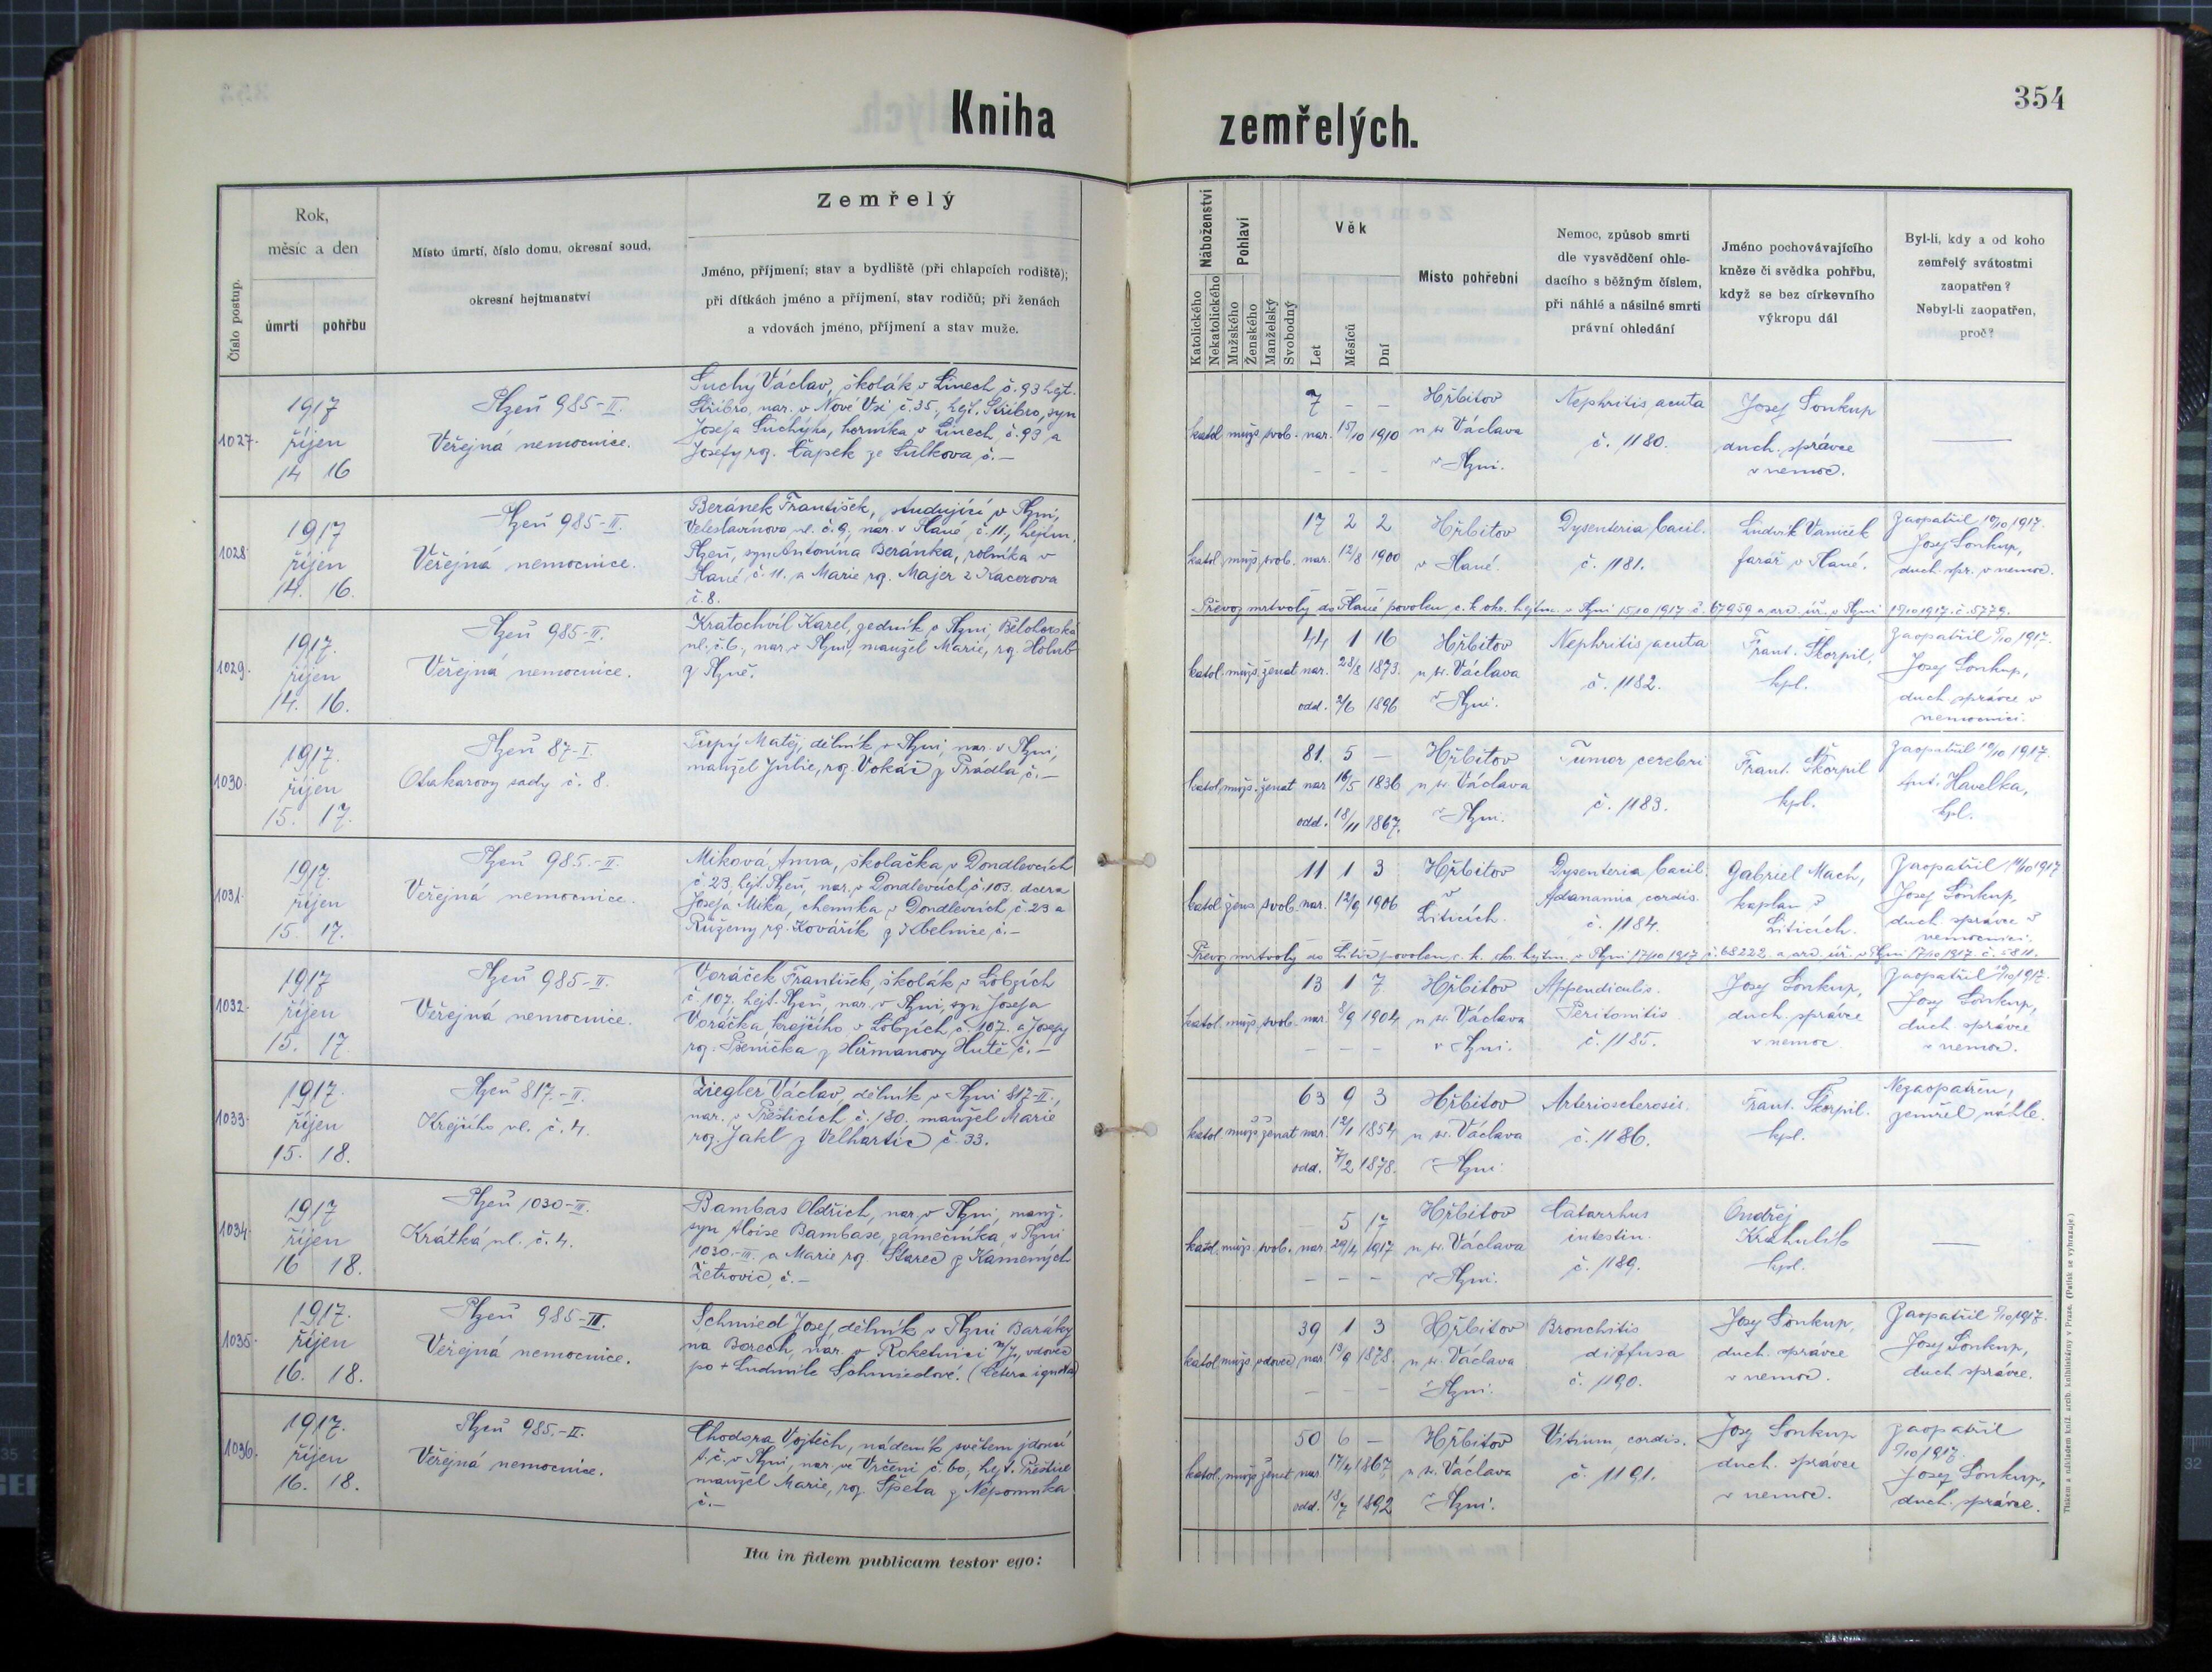 354
Kniha
zemřelých.
Číslo postup.
Rok,
měsíc a den
úmrtí
pohřbu
Místo úmrtí, číslo domu, okresní soud,
okresní hejtmanství
Zemřelý
Jméno, příjmení; stav a bydliště (při chlapcích rodiště);
při dítkách jméno a příjmení, stav rodičů; při ženách
a vdovách jméno, příjmení a stav muže.
Náboženství
Katolického
Nekatolického
Pohlaví
Mužského
Ženského
Manželský
Svobodný
Věk
Let
Měsíců
Dní
Místo pohřební
Nemoc, způsob smrti
dle vysvědčení ohle-
dacího s běžným číslem,
při náhlé a násilné smrti
právní ohledání
Jméno pochovávajícího
kněze či svědka pohřbu,
když se bez církevního
výkropu dál
Byl-li, kdy a od koho
zemřelý svátostmi
zaopatřen?
Nebyl-li zaopatřen,
proč?
1027.
1917
říjen
14 16
Plzeň 985-II.
Veřejná nemocnice.
Suchý Václav, školák v Línech č. 93 hejt.
Stříbro, nar. v Nové Vsi č. 35, hejt. Stříbro, syn
Josefa Suchýho, horníka v Línech č. 93 a
Josefy roz. Čapek ze Sulkova č. –
7 – –
katol. muž. svob. nar. 15/10 1910
– – –
Hřbitov
u sv. Václava
v Plzni.
Nephritis acuta
č. 1180.
Josef Soukup
duch. správce
v nemoc.
1028.
1917
říjen
14. 16.
Plzeň 985-II.
Veřejná nemocnice.
Beránek František, studující v Plzni,
Veleslavínova ul. č. 9, nar. v Plané č. 11., hejtm.
Plzeň, syn Antonína Beránka, rolníka v
Plané č. 11. a Marie roz. Majer z Kacerova
č. 8.
17 2 2
katol. muž. svob. nar. 12/8 1900
Hřbitov
v Plané.
Dysenteria bacil.
č. 1181.
Ludvík Vaníček
farář v Plané.
Zaopatřil 10/10 1917.
Josef Soukup,
duch. spr. v nemoc.
Převoz mrtvoly do Plané povolen c. k. okr. hejtm. v Plzni 15/10 1917 č. 67959 a arc. úř. v Plzni 15/10 1917 č. 5779.
1029.
1917.
říjen
14. 16.
Plzeň 985-II.
Veřejná nemocnice.
Kratochvíl Karel, zedník v Plzni, Bělohorská
ul. č. 6., nar. v Plzni, manžel Marie, roz. Holub
z Plzně.
44 1 16
katol. muž. ženat nar. 28/8 1873.
odd. 2/6 1896
Hřbitov
u sv. Václava
v Plzni.
Nephritis acuta
č. 1182.
Frant. Škorpil,
kpl.
Zaopatřil 5/10 1917.
Josef Soukup,
duch. správce v
nemocnici.
1030.
1917.
říjen
15. 17.
Plzeň 87-I.
Otakarovy sady č. 8.
Tupý Matěj, dělník v Plzni, nar. v Plzni,
manžel Julie, roz. Vokáč z Prádla, č. –
81. 5 –
katol. muž. ženat nar. 16/5 1836
odd. 18/11 1867.
Hřbitov
u sv. Václava
v Plzni.
Tumor cerebri
č. 1183.
Frant. Škorpil
kpl.
Zaopatřil 10/10 1917.
Ant. Havelka,
kpl.
1031.
1917.
říjen
15. 17.
Plzeň 985.-II.
Veřejná nemocnice.
Miková Anna, školačka v Doudlevcích
č. 23, hejt. Plzeň, nar. v Doudlevcích č. 103. dcera
Josefa Mika, chemika v Doudlevcích č. 23 a
Růženy roz. Kovářík z Kbelnice, č. –
11 1 3
katol. žens. svob. nar. 12/9 1906
Hřbitov
v
Liticích.
Dysenteria bacil.
Adanamia cordis.
č. 1184.
Gabriel Mach,
kaplan v
Liticích.
Zaopatřil 14/10 1917
Josef Soukup,
duch. správce v
nemocnici.
Převoz mrtvoly do Litic povolen c. k. okr. hejtm. v Plzni 17/10 1917 č. 68222 a arc. úř. v Plzni 17/10 1917. č. 5811.
1032.
1917
říjen
15. 17
Plzeň 985-II.
Veřejná nemocnice.
Voráček František, školák v Lobzích
č. 107. hejt. Plzeň, nar. v Plzni, syn Josefa
Voráčka, krejčího v Lobzích, č. 107. a Josefy
roz. Pšenička z Heřmanovy Hutě, č. –
13 1 7
katol. muž. svob. nar. 8/9 1904
– – –
Hřbitov
u sv. Václava
v Plzni.
Appendicitis.
Peritonitis
č. 1185.
Josef Soukup,
duch. správce
v nemoc.
Zaopatřil 10/10 1917.
Josef Soukup,
duch. správce
v nemoc.
1033.
1917.
říjen
15. 18.
Plzeň 817.-II.
Krejčího ul. č. 4.
Ziegler Václav, dělník v Plzni 817-II.,
nar. v Přešticích č. 180. manžel Marie
roz. Jakl z Velhartic č. 33.
63 9 3
katol. muž. ženat nar. 12/1 1854
odd. 7/2 1878.
Hřbitov
u sv. Václava
v Plzni.
Arteriosclerosis.
č. 1186.
Frant. Škorpil.
kpl.
Nezaopatřen,
zemřel náhle.
1034.
1917
říjen
16 18.
Plzeň 1030-III.
Krátká ul. č. 4.
Bambas Oldřich, nar. v Plzni, manž.
syn Aloise Bambase, zámečníka v Plzni
1030.-III. a Marie roz. Starec z Kamenných
Žetrovic, č. –
5 17
katol. muž. svob. nar. 29/4 1917
– – –
Hřbitov
u sv. Václava
v Plzni.
Catarrhus
intestin.
č. 1189.
Ondřej
Krahulík
kpl.
1035.
1917.
říjen
16. 18.
Plzeň 985-II.
Veřejná nemocnice.
Schmied Josef, dělník v Plzni Baráky
na Borech, nar. v Roketnici n/J, vdovec
po + Ludmile Schmiedové. (Cetera ignota)
39 1 3
katol. muž. vdovec nar. 13/9 1878.
– – –
Hřbitov
u sv. Václava
v Plzni.
Bronchitis
diffusa
č. 1190.
Josef Soukup,
duch. správce
v nemoc.
Zaopatřil 5/10 1917.
Josef Soukup,
duch. správce.
1036.
1917.
říjen
16. 18.
Plzeň 985.-II.
Veřejná nemocnice.
Chodora Vojtěch, nádeník světem jdoucí
t. č. v Plzni, nar. ve Vrčeni č. 60, hejt. Přeštice
manžel Marie, roz. Špeta z Nepomuka
č. –
50 6 –
katol. muž. ženat nar. 17/4 1867,
odd. 18/7 1892
Hřbitov
u sv. Václava
v Plzni.
Vitium cordis.
č. 1191.
Josef Soukup
duch. správce
v nemoc.
zaopatřil
5/10 1917.
Josef Soukup,
duch. správce.
Ita in fidem publicam testor ego:
Tiskem a nákladem kníž. arcib. knihtiskárny v Praze. (Patisk se vyhrazuje.)